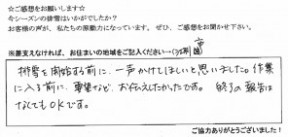 ☆ご感想をお願いします☆
今シーズンの排雪はいかがでしたか？
お客様の声が、私たちの原動力になっています。ぜひ、ご感想をお聞かせ下さい。
※差支えなければ、お住まいの地域をご記入ください→(つが
排雪を開始する前に、一声かけてほしいと思いました。作業
に入る前に、要望など、お伝えしたかったです。終了の報告は
なくてもOKです。
ご協力ありがとうございました！